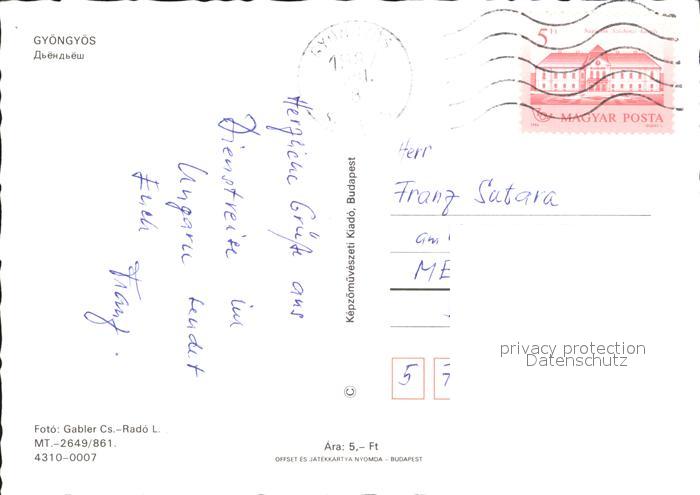 GYÖNGYÖS
Дьёндьёш
GYÖNGYÖS
5 Ft
MAGYAR POSTA
Herzliche Grüße aus
Dienstreise im
Ungarn sendet
Euch Franz.
Képzőművészeti Kiadó, Budapest
©
Herr
Franz Satara
am
ME
5 7
privacy protection
Datenschutz
Fotó: Gabler Cs.–Radó L.
MT.–2649/861.
4310–0007
Ára: 5,– Ft
OFFSET ÉS JÁTÉKKÁRTYA NYOMDA – BUDAPEST